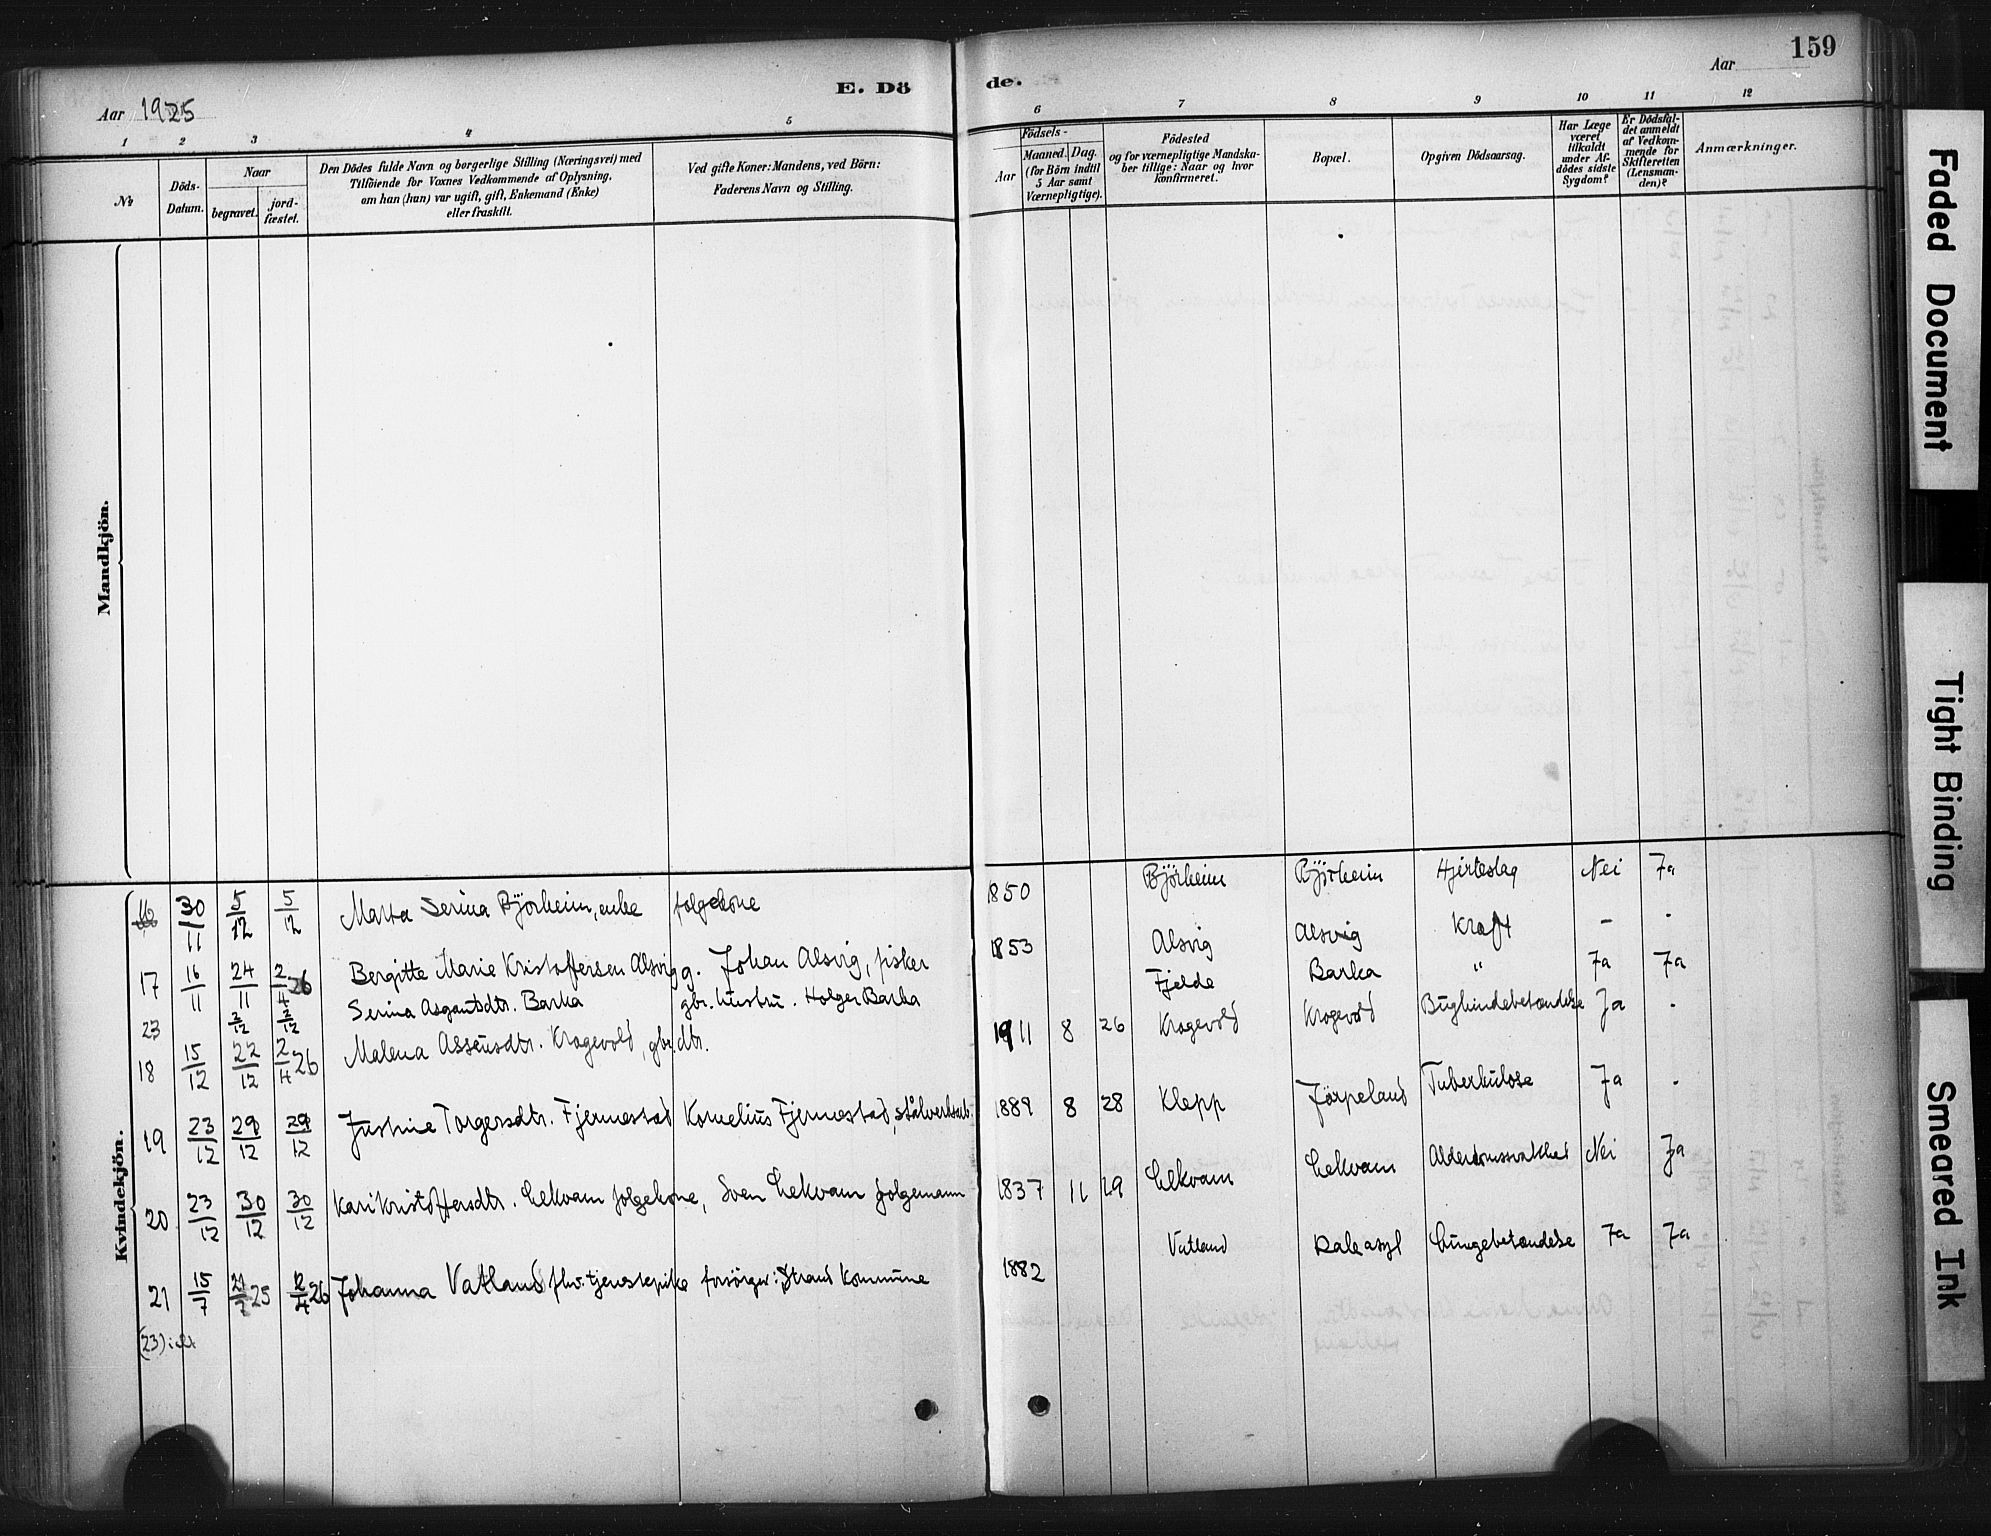 159
E. Dö de.
Aar 1925
Aar
1 2 3 4 5 6 7 8 9 10 11 12
№
Döds-Datum.
Naar
begravet.
jord-fæstet.
Den Dödes fulde Navn og borgerlige Stilling (Næringsvei) med
Tilföiende for Voxnes Vedkommende af Oplysning,
om han (hun) var ugift, gift, Enkemand (Enke)
eller fraskilt.
Ved gifte Koner: Mandens, ved Börn:
Faderens Navn og Stilling.
Födsels-
Aar
Maaned. Dag.
(for Börn indtil
5 Aar samt
Værnepligtige).
Födested
og for værnepligtige Mandska-
ber tillige: Naar og hvor
konfirmeret.
Bopæl.
Opgiven Dödsaarsag.
Har Læge
været
tilkaldt
under Af-
dödes sidste
Sygdom?
Er Dödsfal-
det anmeldt
af Vedkom-
mende for
Skifteretten
(Lensman-
den)?
Anmærkninger.
Mandkjön.
Kvindekjön.
16 30/11 5/12 5/12 Marta Serina Björheim, enke folgekone 1850 Björheim Björheim Hjerteslag Nei Ja
17 16/11 24/11 2/4 26 Bergitte Marie Kristoffersen Alsvig g. Johan Alsvig, fisker 1853 Alsvig Alsvig Kræft - -
23 2/12 2/12 Serina Asgautsdtr. Barka gbr. hustru. Holger Barka Fjelde Barka " Ja Ja
18 15/12 22/12 2/4 26 Malena Assensdtr. Krogevold, gbr. dtr. 1911 8 26 Krogevold Krogevold Bughindebetændelse Ja -
19 23/12 29/12 29/12 Justine Torgersdtr. Fjermestad Kornelius Fjermestad, stålverksarb. 1889 8 28 Klepp Jörpeland Tuberkulose Ja -
20 23/12 30/12 30/12 Kari Kristoffersdtr. Lekvam folgekone, Sven Lekvam folgemann 1837 11 29 Lekvam Lekvam Alderdomssvakhet Nei Ja
21 15/7 21/7 25 12/4 26 Johanna Vatland fhv. tjenestepike forsörger: Strand kommune 1882 Vatland Dale asyl Lungebetændelse Ja Ja
(23)
Faded Document
Tight Binding
Smeared Ink